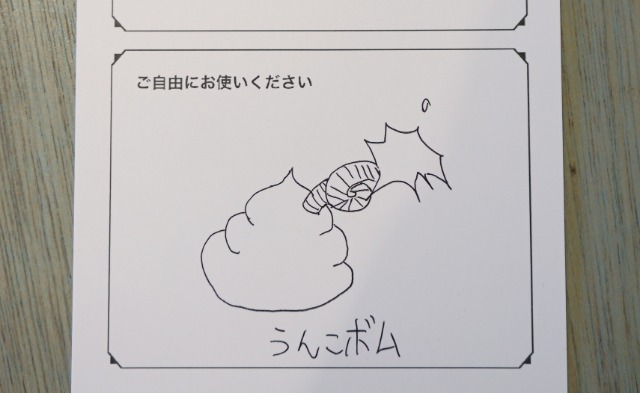 ご自由にお使いください
うんこボム